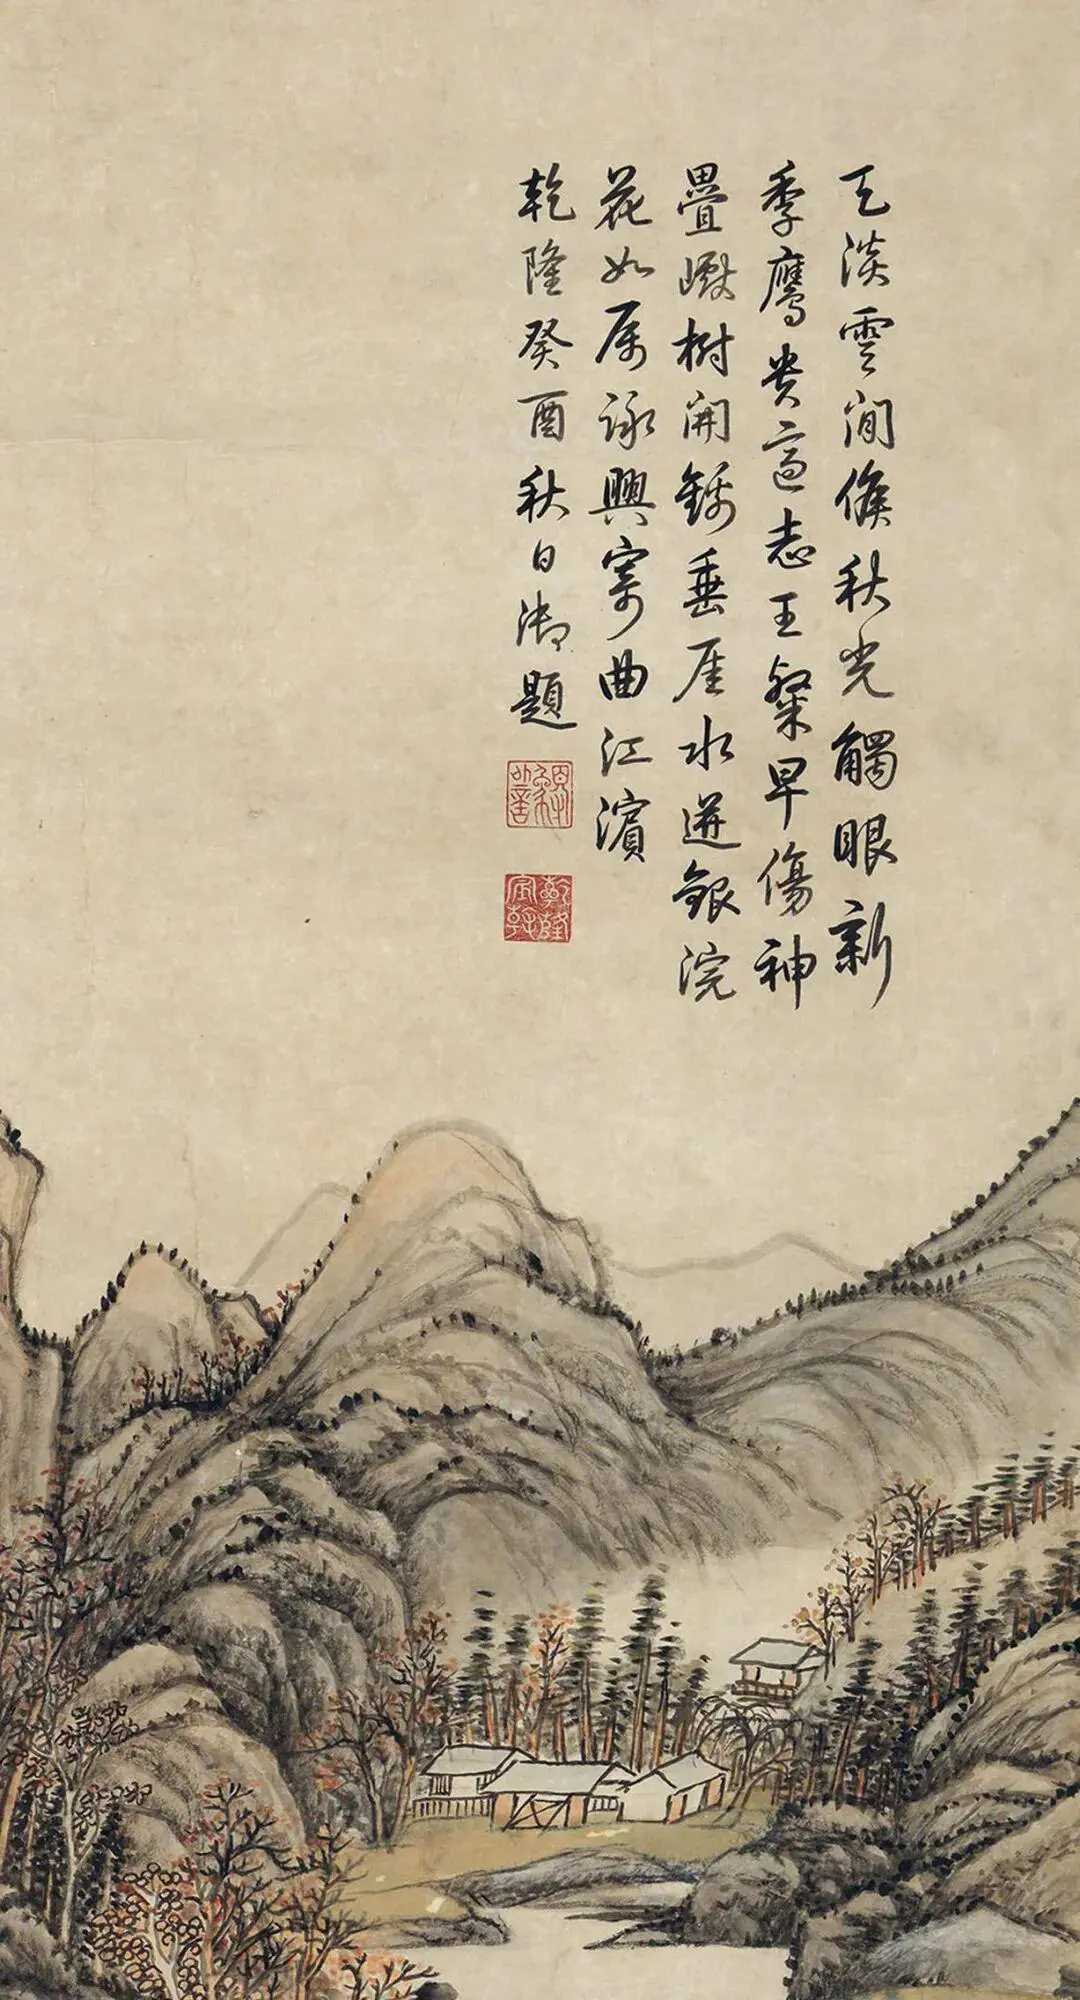 天淡雲閒候秋光觸眼新
季鷹貴適志王粲早傷神
疊巘樹開錦垂崖水迸銀浣
花如属詠興寄曲江濱
乾隆癸酉秋日御題
乾隆宸翰